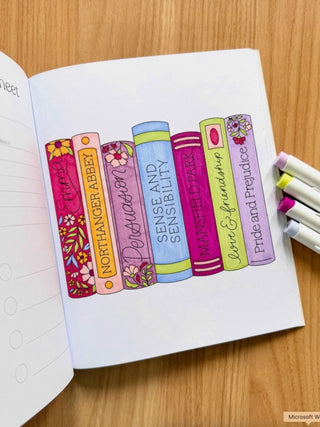 Emma
NORTHANGER ABBEY
Persuasion
SENSE AND
SENSIBILITY
MANSFIELD PARK
love & friendship
Pride and Prejudice
Microsoft W